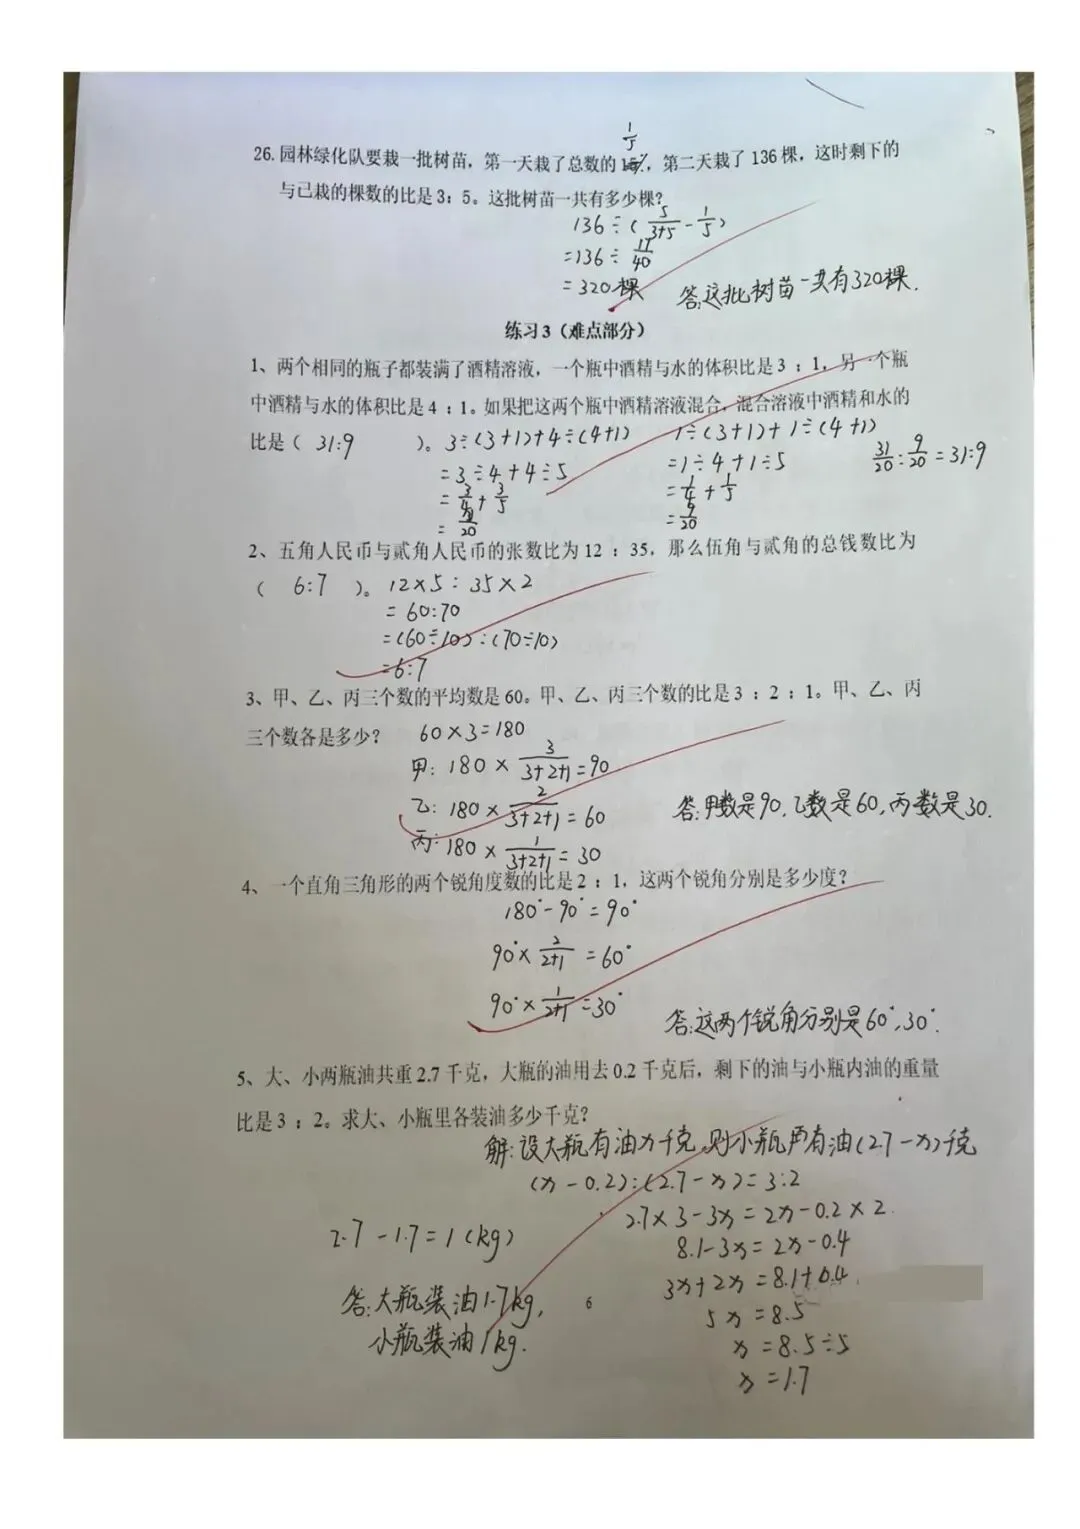 1/5
26. 园林绿化队要栽一批树苗，第一天栽了总数的，第二天栽了 136 棵，这时剩下的
与已栽的棵数的比是 3：5。这批树苗一共有多少棵？
136÷(5/(3+5)-1/5)
=136÷17/40
=320棵 答:这批树苗一共有320棵.
练习 3（难点部分）
1、两个相同的瓶子都装满了酒精溶液，一个瓶中酒精与水的体积比是 3 ：1，另一个瓶
中酒精与水的体积比是 4 ：1。如果把这两个瓶中酒精溶液混合，混合溶液中酒精和水的
比是（ 31:9 ）。 3÷(3+1)+4÷(4+1) 1÷(3+1)+1÷(4+1)
=3÷4+4÷5 =1÷4+1÷5 31/20:9/20=31:9
=3/4+3/5 =1/4+1/5
=/20 =9/20
2、五角人民币与贰角人民币的张数比为 12 ：35，那么伍角与贰角的总钱数比为
（ 6:7 ）。 12×5：35×2
=60:70
=(60÷10):(70÷10)
=6:7
3、甲、乙、丙三个数的平均数是 60。甲、乙、丙三个数的比是 3 ：2 ：1。甲、乙、丙
三个数各是多少？ 60×3=180
甲: 180×3/(3+2+1)=90
乙: 180×2/(3+2+1)=60 答:甲数是90,乙数是60,丙数是30.
丙: 180×1/(3+2+1)=30
4、一个直角三角形的两个锐角度数的比是 2 ：1，这两个锐角分别是多少度？
180°-90°=90°
90°×2/(2+1)=60°
90°×1/(2+1)=30° 答:这两个锐角分别是60°,30°.
5、大、小两瓶油共重 2.7 千克，大瓶的油用去 0.2 千克后，剩下的油与小瓶内油的重量
比是 3 ：2。求大、小瓶里各装油多少千克？
解:设大瓶有油x千克,则小瓶有油(2.7-x)千克
(x-0.2):(2.7-x)=3:2
2.7×3-3x=2x-0.2×2
2.7-1.7=1(kg) 8.1-3x=2x-0.4
3x+2x=8.1+0.4
答:大瓶装油1.7kg, 6 5x=8.5
小瓶装油1kg. x=8.5÷5
x=1.7